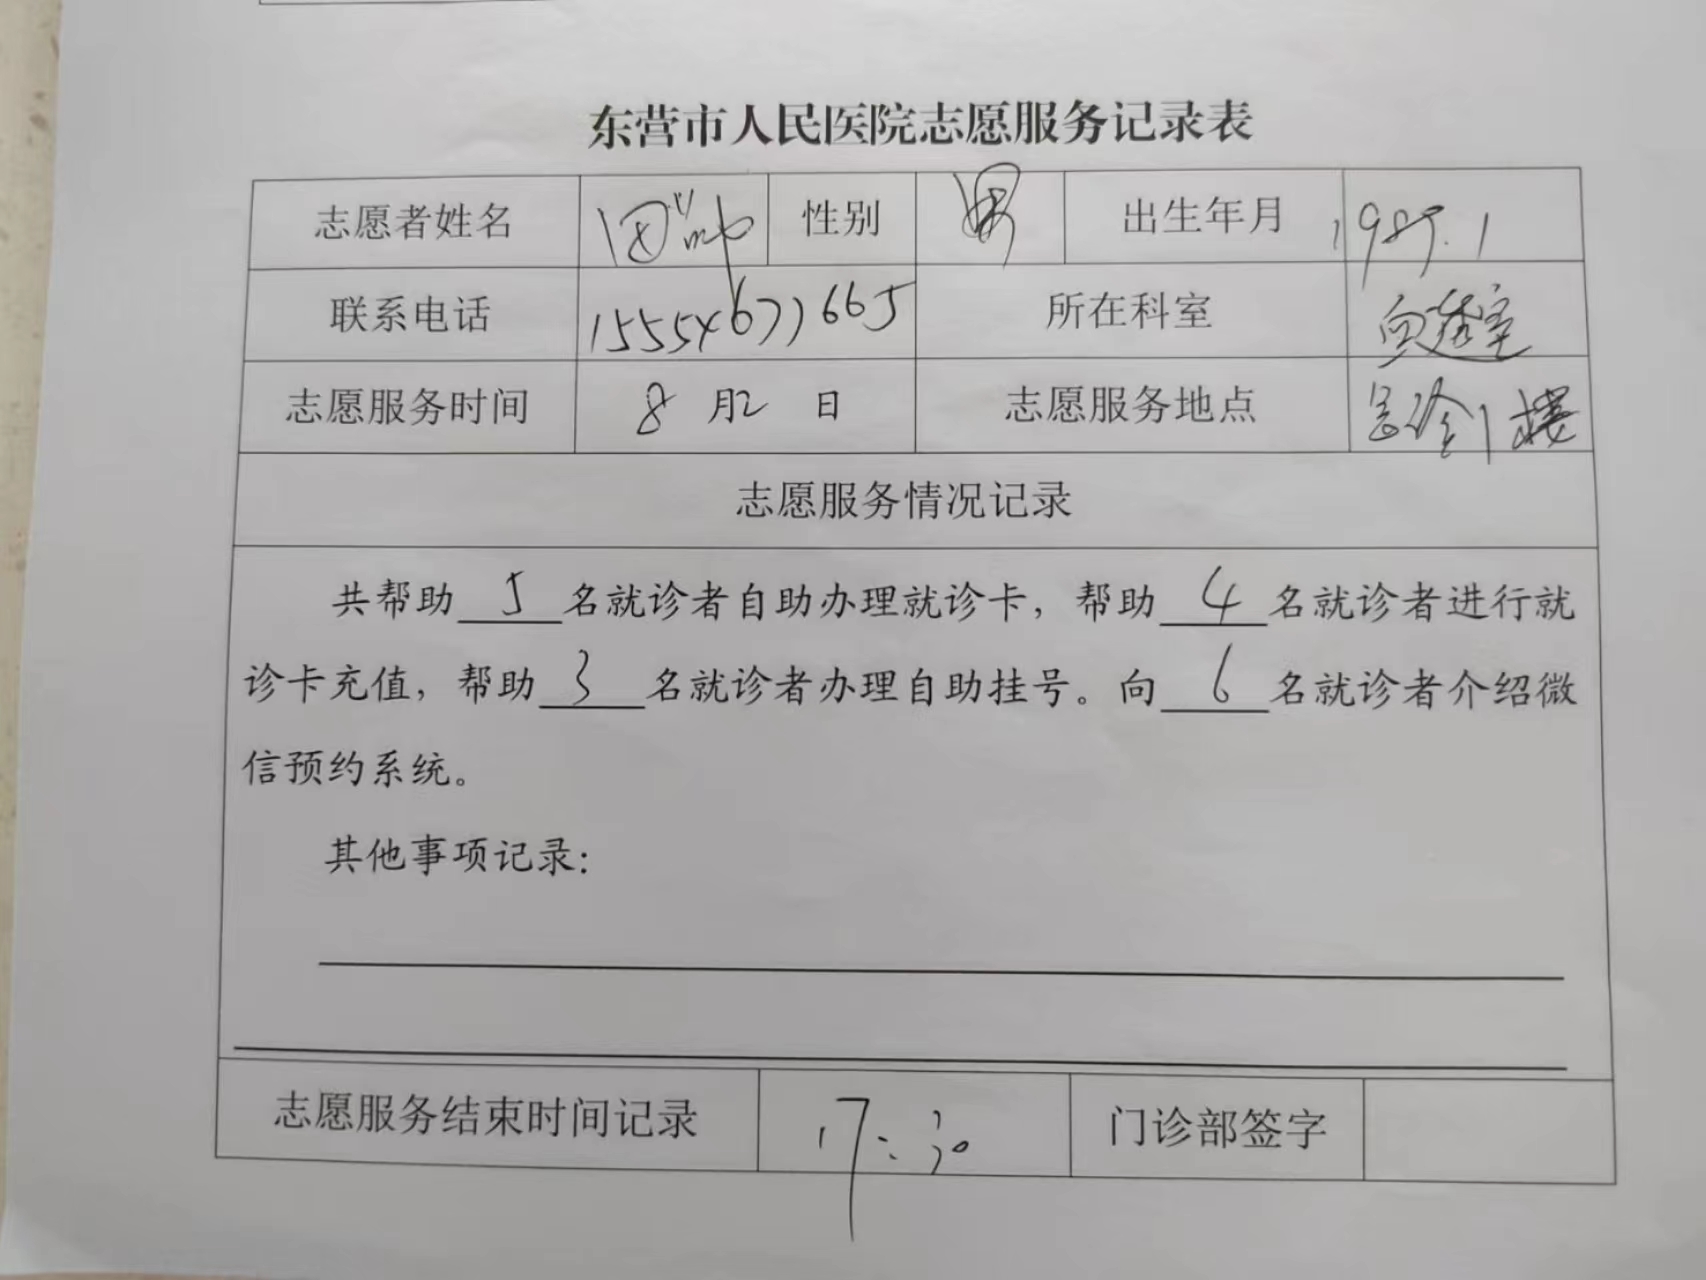 东营市人民医院志愿服务记录表
志愿者姓名 性别 男 出生年月 1985.1
联系电话 15554677665 所在科室 血透室
志愿服务时间 8月2日 志愿服务地点 急诊1楼
志愿服务情况记录
共帮助 5 名就诊者自助办理就诊卡，帮助 4 名就诊者进行就
诊卡充值，帮助 3 名就诊者办理自助挂号。向 6 名就诊者介绍微
信预约系统。
其他事项记录：
志愿服务结束时间记录 17:30 门诊部签字